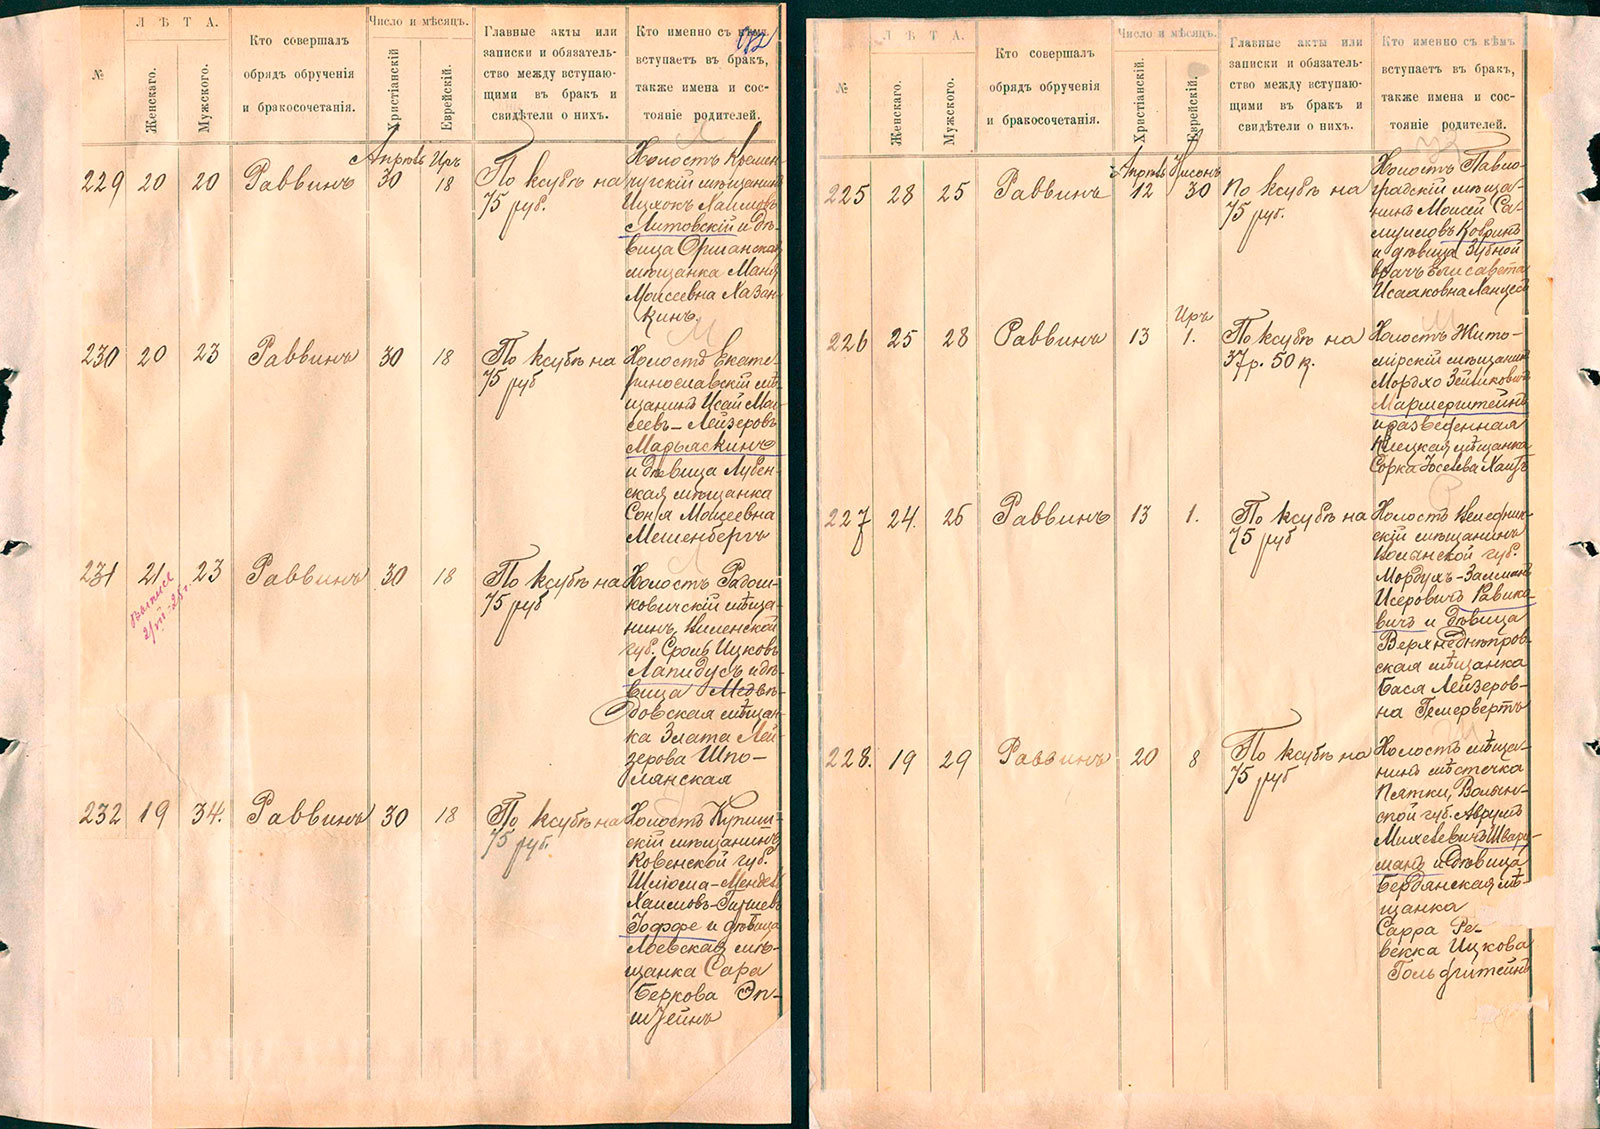 №
ЛѢТА.
Женскаго.
Мужского.
Кто совершалъ
обрядъ обрученія
и бракосочетанія.
Число и мѣсяцъ.
Христіанскій
Еврейскій.
Главные акты или
записки и обязатель-
ство между вступаю-
щими въ бракъ и
свидѣтели о нихъ.
Кто именно съ кѣмъ
вступаетъ въ бракъ,
также имена и сос-
тояніе родителей.
229 20 20 Раввинъ
Апрѣль 30
Иръ 18
По ксубѣ на
75 руб.
Холостъ Кремен-
чугскій мѣщанинъ
Ицхокъ Хаимовъ
Литовскій и дѣ-
вица Оршанская
мѣщанка Маня
Моисеевна Хазан-
кинъ.
230 20 23 Раввинъ 30 18
По ксубѣ на
75 руб
Холостъ Екате-
ринославскій мѣ-
щанинъ Исай Мои-
сеевъ-Лейзеровъ
Марьяскинъ
и дѣвица Лубен-
ская мѣщанка
Соня Моисеевна
Мешенбергъ
231 21 23 Раввинъ 30 18
По ксубѣ на
75 руб
Холостъ Радош-
ковичскій мѣща-
нинъ, Виленской
губ. Сроль Ицковъ
Лапидусъ и дѣ-
вица Медвѣ-
довская мѣщан-
ка Злата Лей-
зерова Шпо-
лянская
232 19 34. Раввинъ 30 18
По ксубѣ на
75 руб
Холостъ Купиш-
скій мѣщанинъ
Ковенской губ.
Шліома-Мендель
Хаимовъ-Гиршевъ
Іоффе и дѣвица
Лоевская мѣ-
щанка Сара
Беркова Эп-
штейнъ
№
ЛѢТА.
Женскаго.
Мужского.
Кто совершалъ
обрядъ обрученія
и бракосочетанія.
Число и мѣсяцъ.
Христіанскій.
Еврейскій.
Главные акты или
записки и обязатель-
ство между вступаю-
щими въ бракъ и
свидѣтели о нихъ.
Кто именно съ кѣмъ
вступаетъ въ бракъ,
также имена и сос-
тояніе родителей.
225 28 25 Раввинъ
Апрѣль 12
Нисонъ 30
По ксубѣ на
75 руб.
Холостъ Павло-
градскій мѣща-
нинъ Моисей Са-
муиловъ Ковринъ
и дѣвица Зубной
врачъ Елисавета
Исааковна
226 25 28 Раввинъ 13
Иръ 1.
По ксубѣ на
37 р. 50 к.
Холостъ Жито-
мірскій мѣщанинъ
Мордхо Зейликовичъ
Мармерштейнъ
и разведенная
мѣщанка
Сорка Іосеева
227 24. 26 Раввинъ 13 1.
По ксубѣ на
75 руб
Холостъ
скій мѣщанинъ
губ.
Мордухъ-Залманъ
Исеровичъ Равико-
вичъ и дѣвица
Верхнеднѣпров-
ская мѣщанка
Бася Лейзеров-
на Гемервертъ
228. 19 29 Раввинъ 20 8
По ксубѣ на
75 руб
Холостъ мѣща-
нинъ мѣстечка
Пятки, Волын-
ской губ. Аврумъ
Михелевичъ Шварц-
манъ и дѣвица
Бердянская мѣ-
щанка
Сарра Ре-
векка Ицкова
Гольдштейнъ